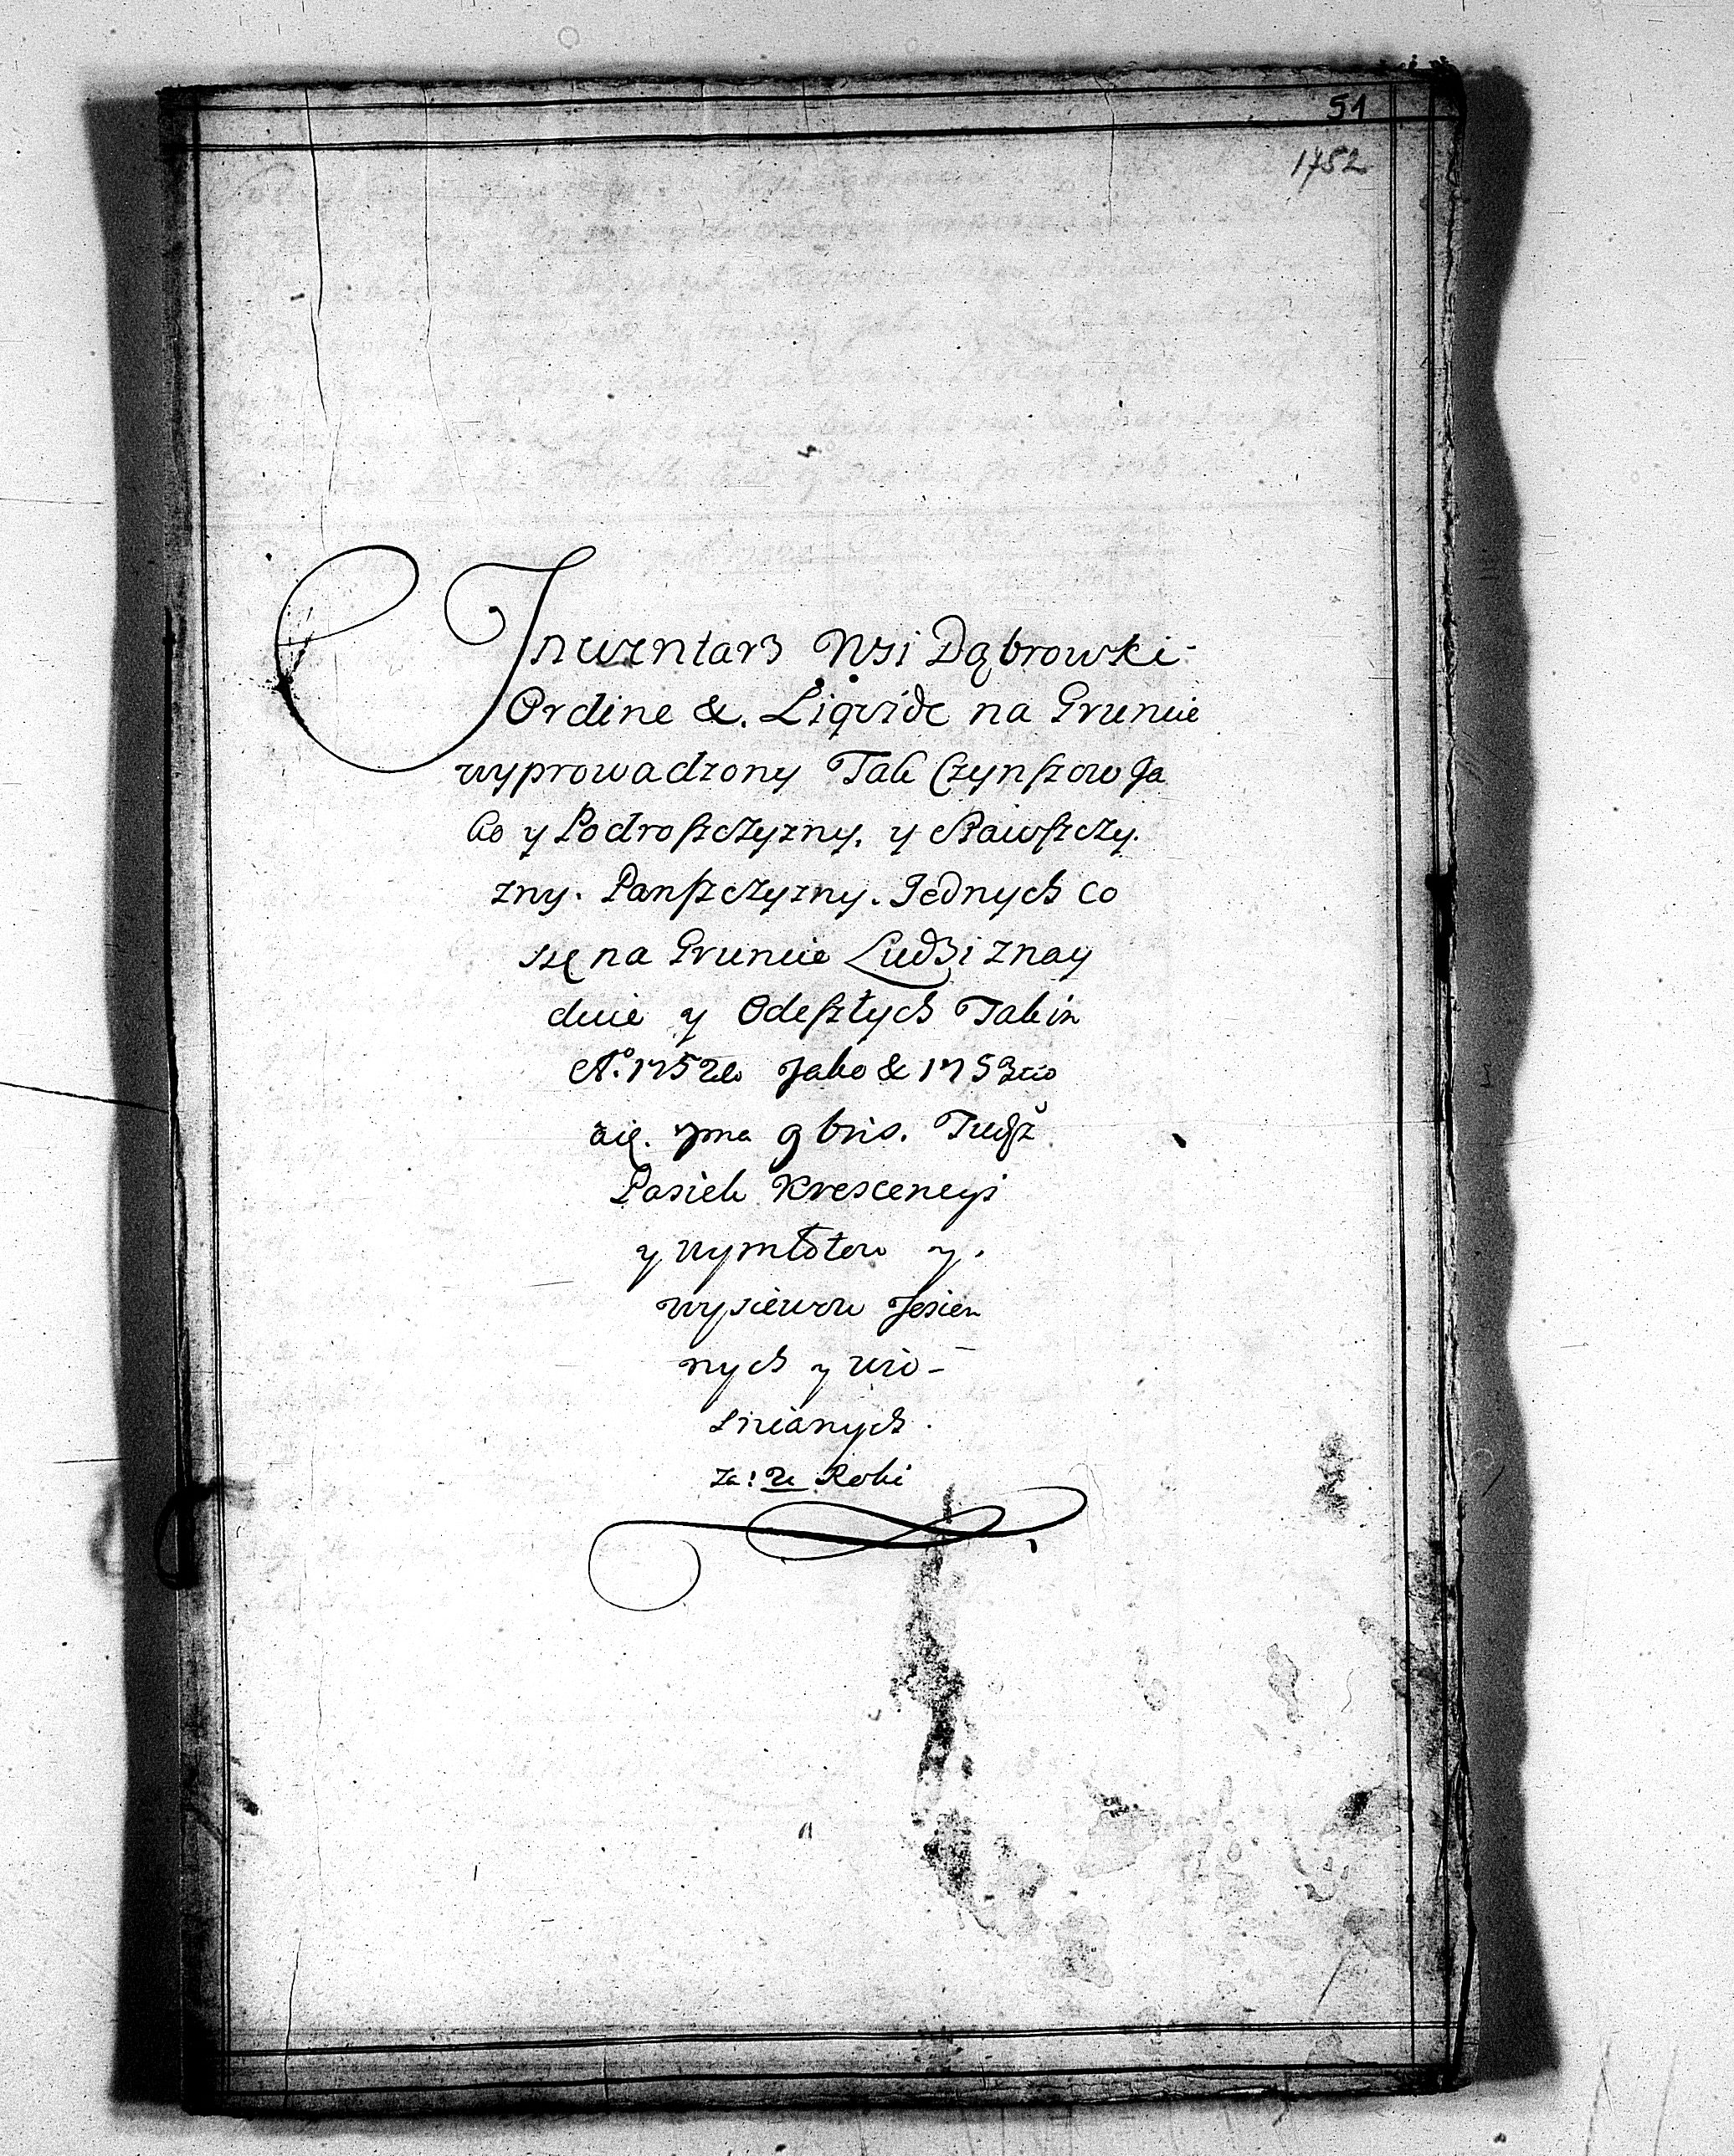 51
1752
Inwentarz Wsi Dąbrowki
Ordine &. Liqvide na Gruncie
wyprowadzony Tak Czynszow Ja
ko y Podroszczyzny, y
zny. Panszczyzny. Jednych co
się na Gruncie Ludzi znay
duie y Odeszłych Tak in
Aº. 1752do Jako & 1753tio
die. 7ma 9bris. Tudż
Pasiek Krescencyi
y Wymłotow y.
wysiewow Jesien
nych y wio-
snianych.
Za: 2e Roki